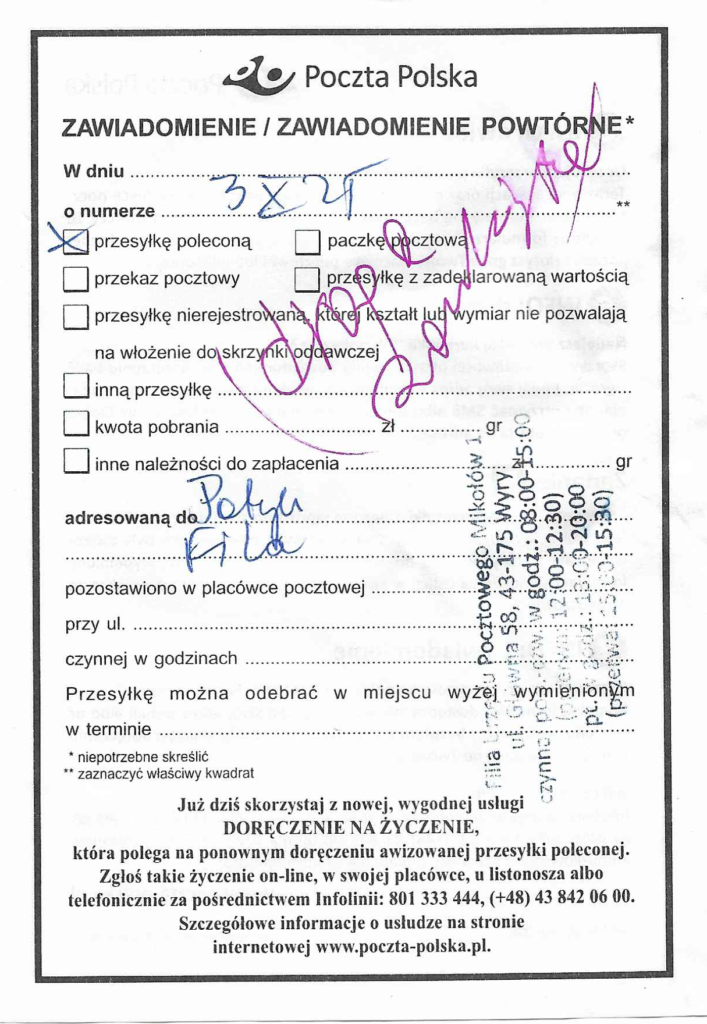 Poczta Polska
ZAWIADOMIENIE / ZAWIADOMIENIE POWTÓRNE*
W dniu ........ 3 X 21
o numerze ........ **
przesyłkę poleconą
paczkę pocztową
przekaz pocztowy
przesyłkę z zadeklarowaną wartością
przesyłkę nierejestrowaną, której kształt lub wymiar nie pozwalają
na włożenie do skrzynki oddawczej
inną przesyłkę ........
kwota pobrania ........ zł ........ gr
inne należności do zapłacenia ........ zł ........ gr
adresowaną do Patyk
Fila
pozostawiono w placówce pocztowej ........
przy ul. ........
czynnej w godzinach ........
Przesyłkę można odebrać w miejscu wyżej wymienionym
w terminie ........
* niepotrzebne skreślić
** zaznaczyć właściwy kwadrat
Filia Urzędu Pocztowego Mikołów 1
ul. Główna 58, 43-175 Wyry
czynna: pon.-czw. w godz.: 08:00-15:00
(przerwa: 12:00-12:30)
pt. w godz.: 13:00-20:00
(przerwa: 15:00-15:30)
Już dziś skorzystaj z nowej, wygodnej usługi
DORĘCZENIE NA ŻYCZENIE,
która polega na ponownym doręczeniu awizowanej przesyłki poleconej.
Zgłoś takie życzenie on-line, w swojej placówce, u listonosza albo
telefonicznie za pośrednictwem Infolinii: 801 333 444, (+48) 43 842 06 00.
Szczegółowe informacje o usłudze na stronie
internetowej www.poczta-polska.pl.